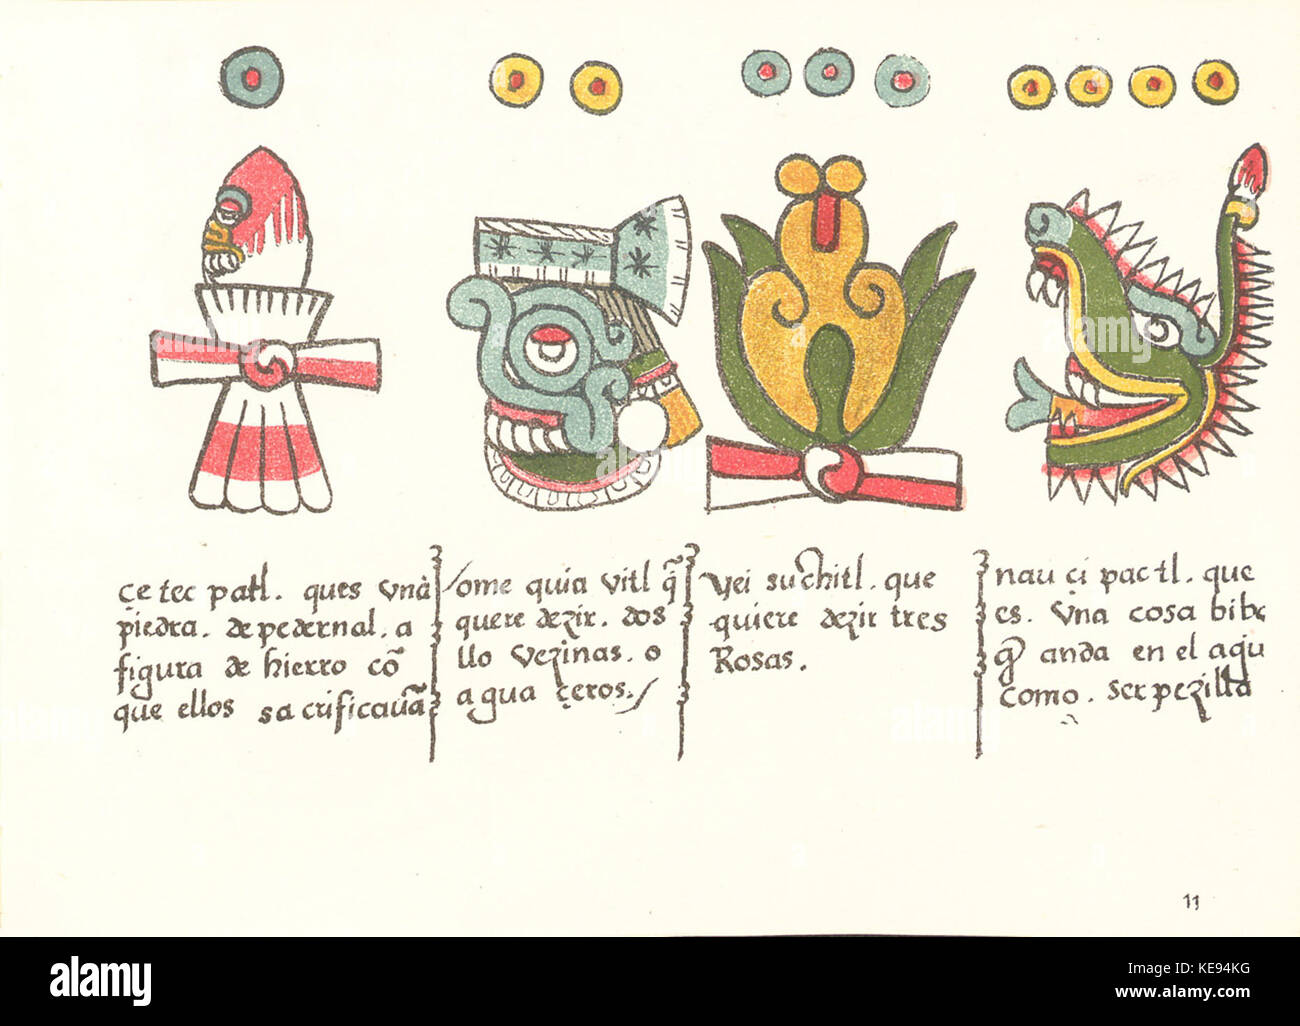 çe tec patl. ques vnà
piedra. de pedernal. a
figura de hierro cõ
que ellos sacrificauã
ome quia vitl q̃
quere dezir. dos
llo vezinas. o
agua çeros./
yei suchitl. que
quiere dezir tres
Rosas.
nau çi pactl. que
es. vna cosa bibe
q̃ anda en el aqu
como. serpezilla
11
alamy
Image ID: KE94KG
www.alamy.com